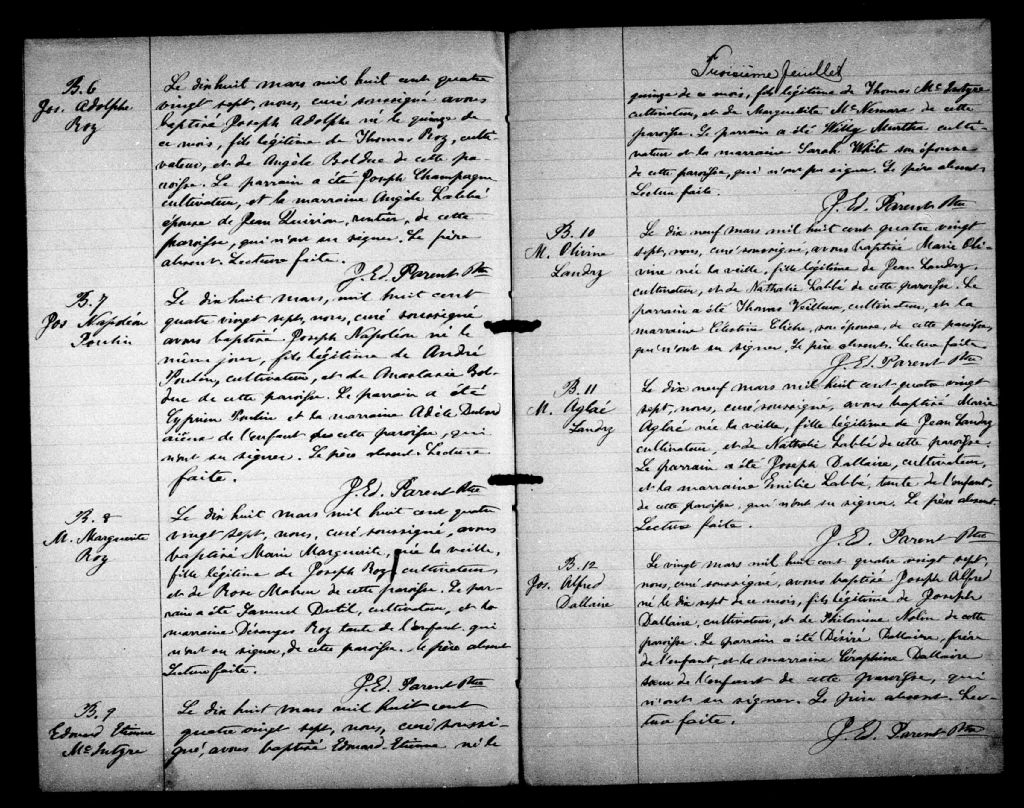 B. 6
Jos. Adolphe
Roy
Le dix huit mars mil huit cent quatre
vingt sept, nous, curé soussigné avons
baptisé Joseph Adolphe né le quinze de
ce mois, fils légitime de Thomas Roy, culti-
vateur, et de Angèle Bolduc de cette pa-
roisse. Le parrain a été Joseph Champagne
cultivateur, et la marraine Angèle Labbé
épouse de Jean Quirion, rentier, de cette
paroisse, qui n'ont su signer. Le père
absent. Lecture faite.
J. Ed. Parent Ptre
B. 7
Jos Napoléon
Poulin
Le dix huit mars, mil huit cent
quatre vingt sept, nous, curé soussigné
avons baptisé Joseph Napoléon né le
même jour, fils légitime de André
Poulin, cultivateur, et de Anastasie Bol-
duc de cette paroisse. Le parrain a été
Cyprien Poulin et la marraine Adèle
de l'enfant de cette paroisse, qui
n'ont su signer. Le père absent. Lecture
faite.
J. Ed. Parent Ptre
B. 8
M. Marguerite
Roy
Le dix huit mars mil huit cent quatre
vingt sept, nous, curé soussigné, avons
baptisé Marie Marguerite, née la veille,
fille légitime de Joseph Roy cultivateur
et de Rose Mathieu de cette paroisse. Le par-
rain a été Samuel Dutil, cultivateur, et la
marraine Désanges Roy tante de l'enfant, qui
n'ont su signer, de cette paroisse. le père absent
Lecture faite.
J. Ed. Parent Ptre
B. 9
Edouard Etienne
McIntyre
Le dix huit mars mil huit cent
quatre vingt sept, nous, curé soussi-
gné, avons baptisé Edouard Etienne né le
Troisième feuillet
quinze de ce mois, fils légitime de Thomas McIntyre
cultivateur, et de Marguerite McNemara de cette
paroisse. Le parrain a été Willy Murtha culti-
vateur et la marraine Sarah White son épouse
de cette paroisse, qui n'ont pu signer. Le père absent.
Lecture faite.
J. Ed. Parent Ptre
B. 10
M. Olivine
Landry
Le dix neuf mars mil huit cent quatre vingt
sept, nous, curé soussigné, avons baptisé Marie Oli-
vine née la veille, fille légitime de Jean Landry,
cultivateur, et de Nathalie Labbé de cette paroisse. Le
parrain a été Thomas Veilleux, cultivateur, et la
marraine Célestine Cliche, son épouse, de cette paroisse,
qui n'ont su signer. Le père absent. Lecture faite
J. Ed. Parent Ptre
B. 11
M. Aglaé
Landry
Le dix neuf mars mil huit cent quatre vingt
sept, nous, curé soussigné, avons baptisé Marie
Aglaé née la veille, fille légitime de Jean Landry
cultivateur, et de Nathalie Labbé de cette paroisse.
Le parrain a été Joseph Dallaire, cultivateur,
et la marraine Emilie Labbé, tante de l'enfant,
de cette paroisse, qui n'ont su signer. Le père absent.
Lecture faite.
J. Ed. Parent Ptre
B. 12
Jos. Alfred
Dallaire
Le vingt mars mil huit cent quatre vingt sept,
nous, curé soussigné, avons baptisé Joseph Alfred
né le dix sept de ce mois, fils légitime de Joseph
Dallaire, cultivateur, et de Philomène Nolin de cette
paroisse. Le parrain a été Désiré Dallaire, frère
de l'enfant, et la marraine Séraphine Dallaire
sœur de l'enfant de cette paroisse, qui
n'ont su signer. Le père absent. Lec-
ture faite.
J. Ed. Parent Ptre